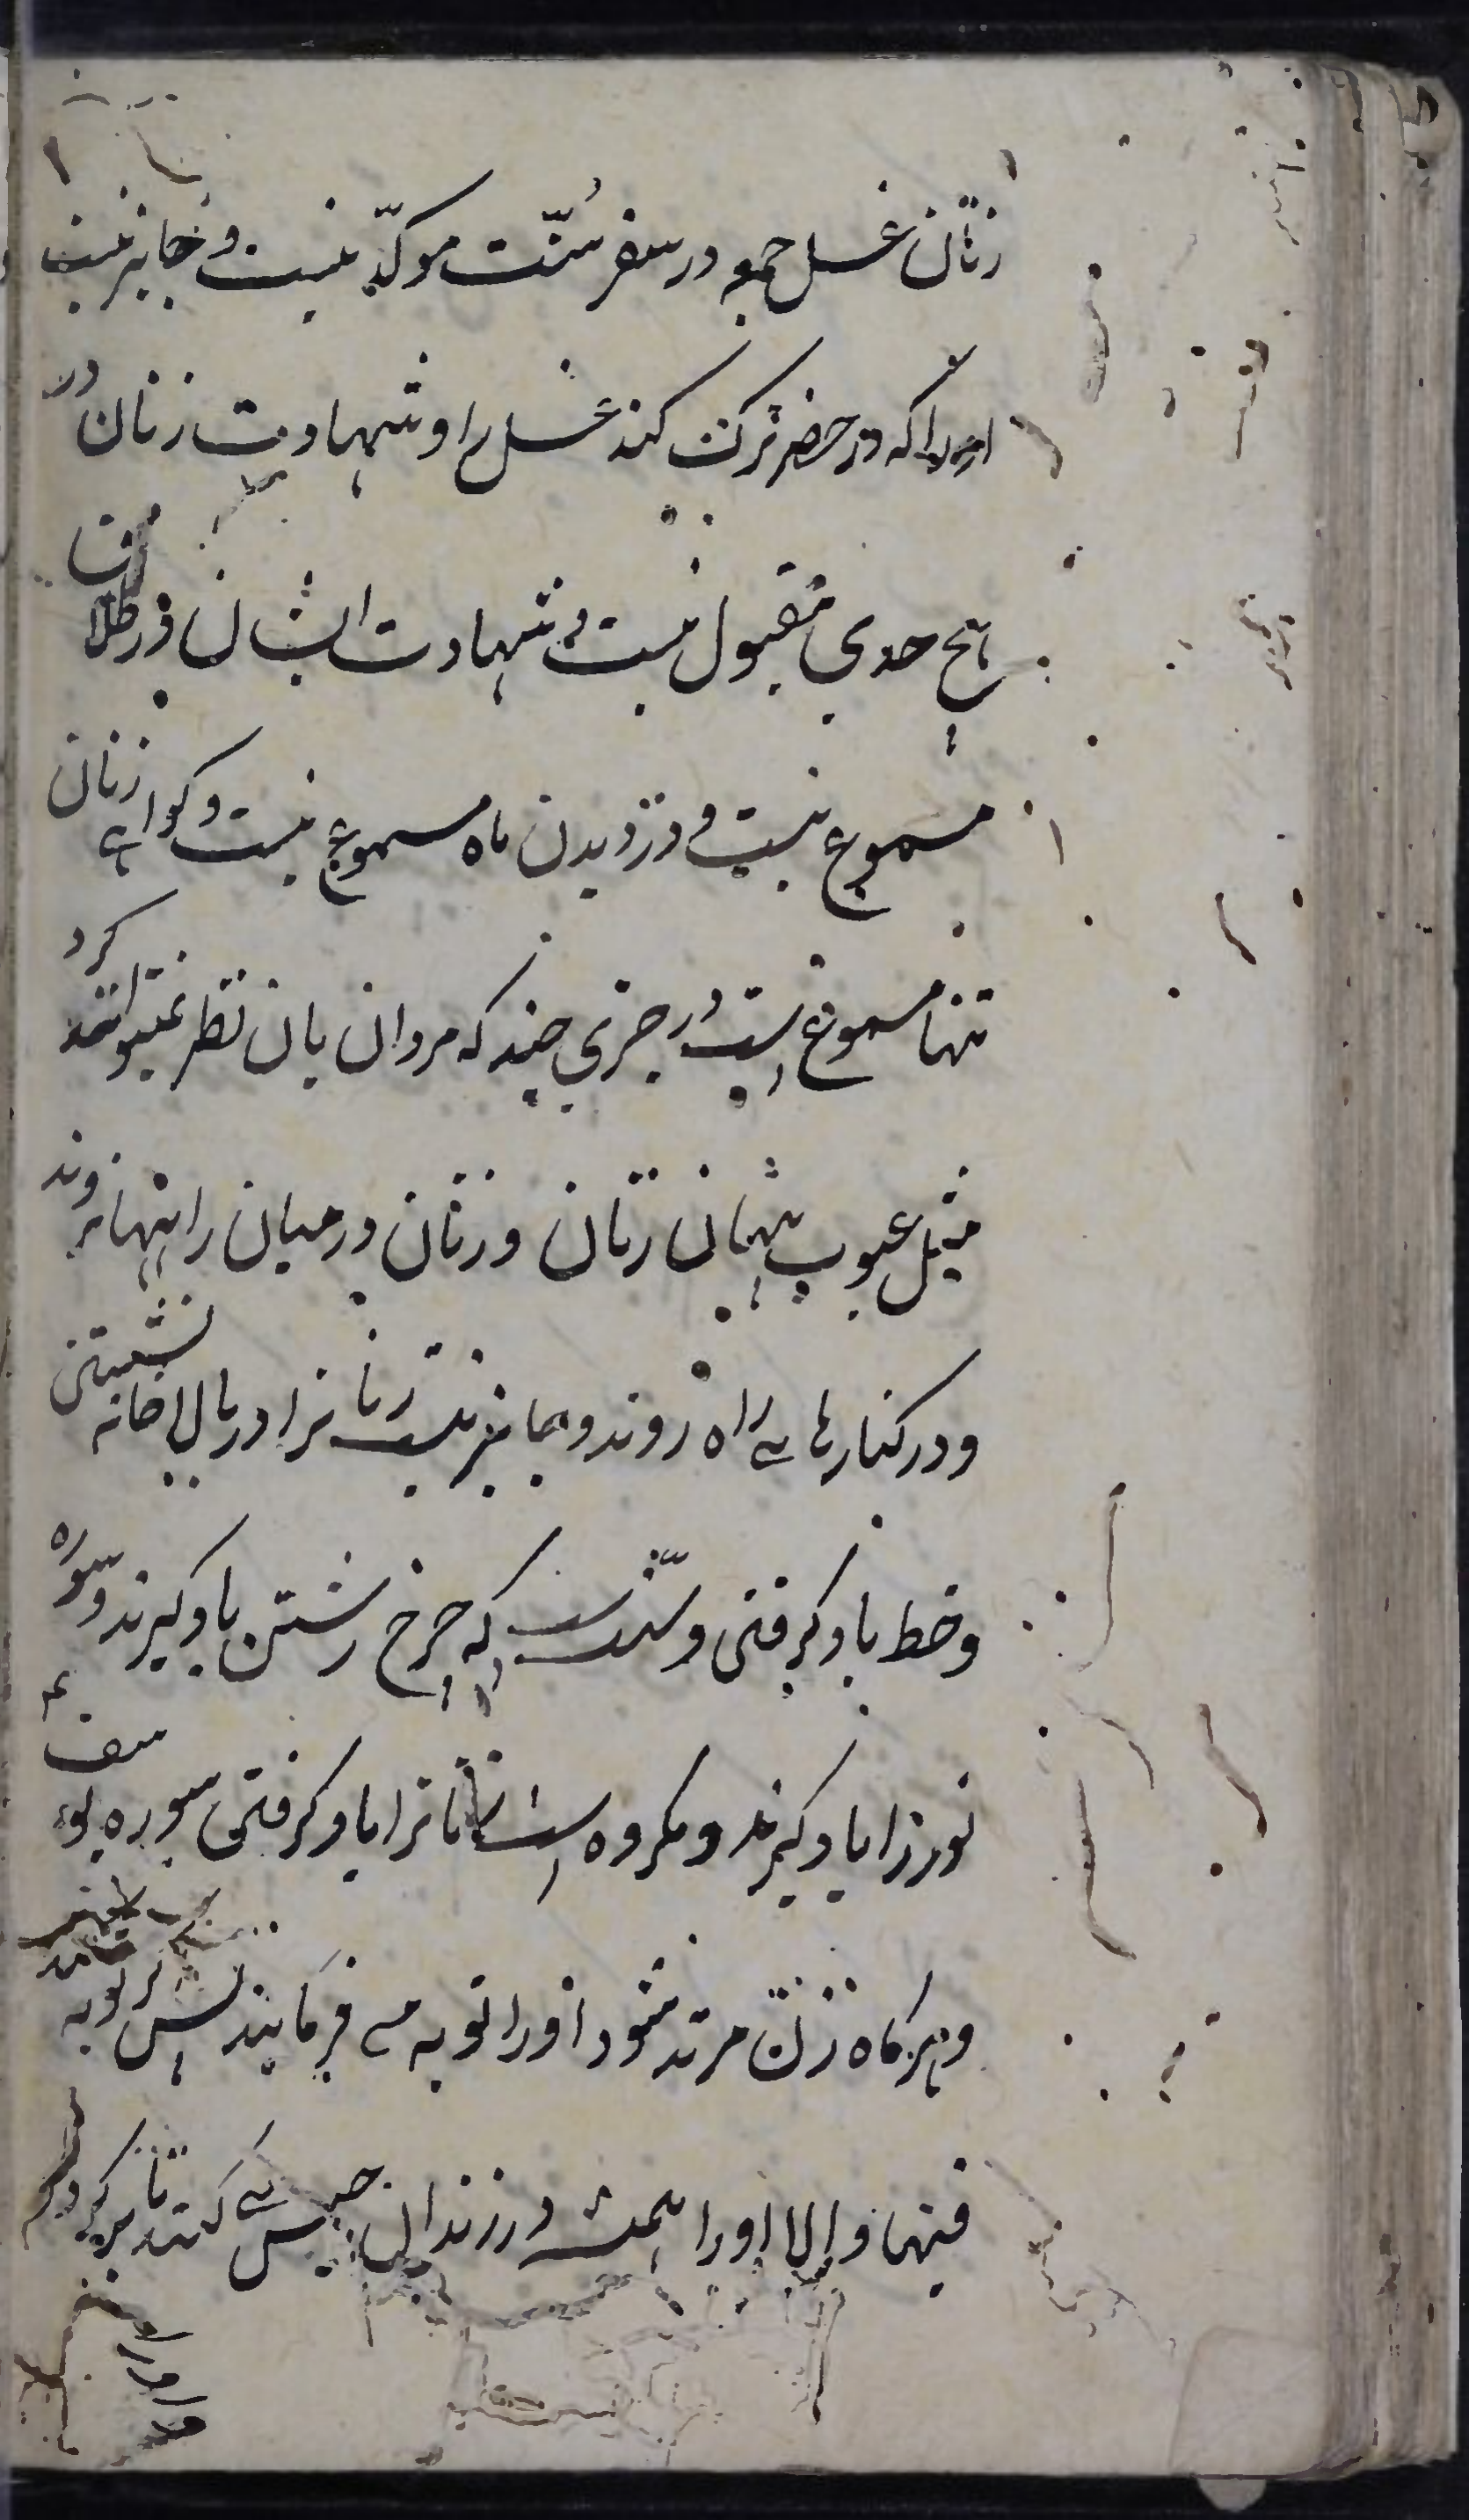 زنان غسل جمعه در سفر سُنّت موکدّ نیست و جایز نیست
او را که در حضر ترک کند غسل را و شهادت زنان در
هیچ حدی مقبول نیست و شهادت ایشان در طلاق
مسموع نیست و در دیدن ماه مسموع نیست و کواهی زنان
تنها مسموع است در چیزی چند که مردان بان نظر نمیتوانند کرد
مثل عیوب پنهان زنان و زنان در میان راهها نروند
و در کنارهای راه روند و جایز نیست زنانرا در بالاخانه نشستن
و خط یاد کرفتن و سنّتست که چرخ رشتن یاد کیرند و سوره
نور را یاد کیرند و مکروه است زنانرا یاد کرفتن سوره یوسف ع
و هرکاه زن مرتد شود او را توبه می فرمایند پس اگر توبه
فبها و الا او را همیشه در زندان حبس می کنند تا بمیرد